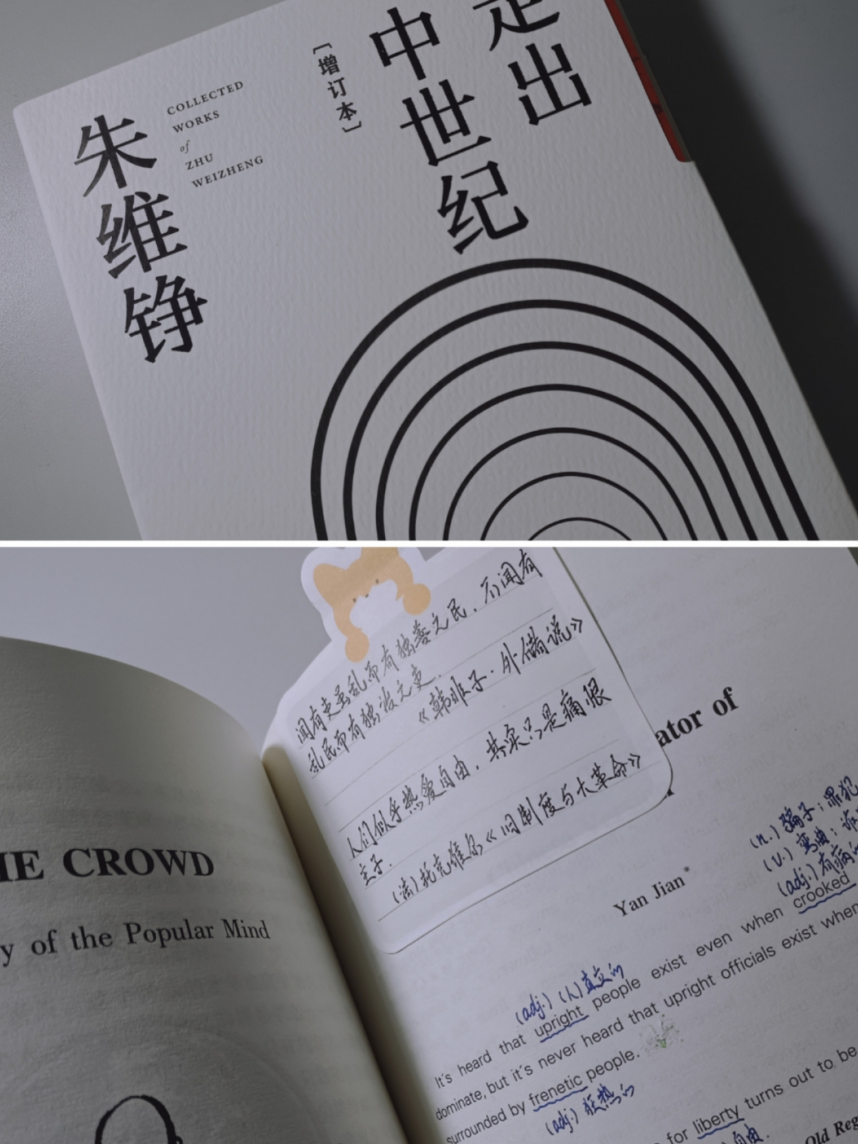 走出
中世纪
[增订本]
COLLECTED
WORKS
of
ZHU
WEIZHENG
朱维铮
闻有吏虽乱而有独善之民，不闻有
乱民而有独治之吏.
《韩非子·外储说》
人们似乎热爱自由，其实只是痛恨
主子.
(法)托克维尔《旧制度与大革命》
HE CROWD
y of the Popular Mind
ator of
Yan Jian*
(n.) 骗子；罪犯
(v.) 弯曲；诈
(adj.) 有病的
(adj.) (人)直立的
It's heard that upright people exist even when crooked
dominate, but it's never heard that upright officials exist when
surrounded by frenetic people.
(adj.) 狂热的
for liberty turns out to be
自由.
Old Reg